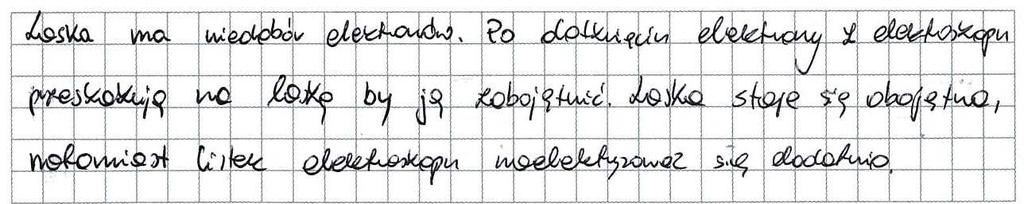 Laska ma niedobór elektronów. Po dotknięciu elektrony z elektroskopu
preskakują na laskę by ją zobojętnić. Laska staje się obojętna,
natomiast listek elektroskopu naelektyzoważ się dodatnio.